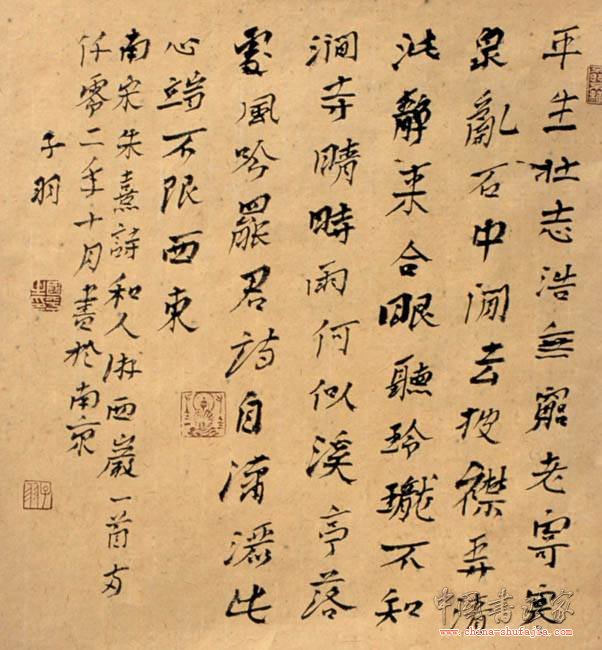 平生壯志浩無窮老寄寒
泉亂石中閒去披襟弄清
泚靜来合眼聽玲瓏不知
澗寺晴時雨何似溪亭落
處風吟罷君詩自瀟灑此
心端不限西東
南宋朱熹詩和人游西巖一首
仟零二年十月書於南京
子羽
中國書法家
www.china-shufajia.com